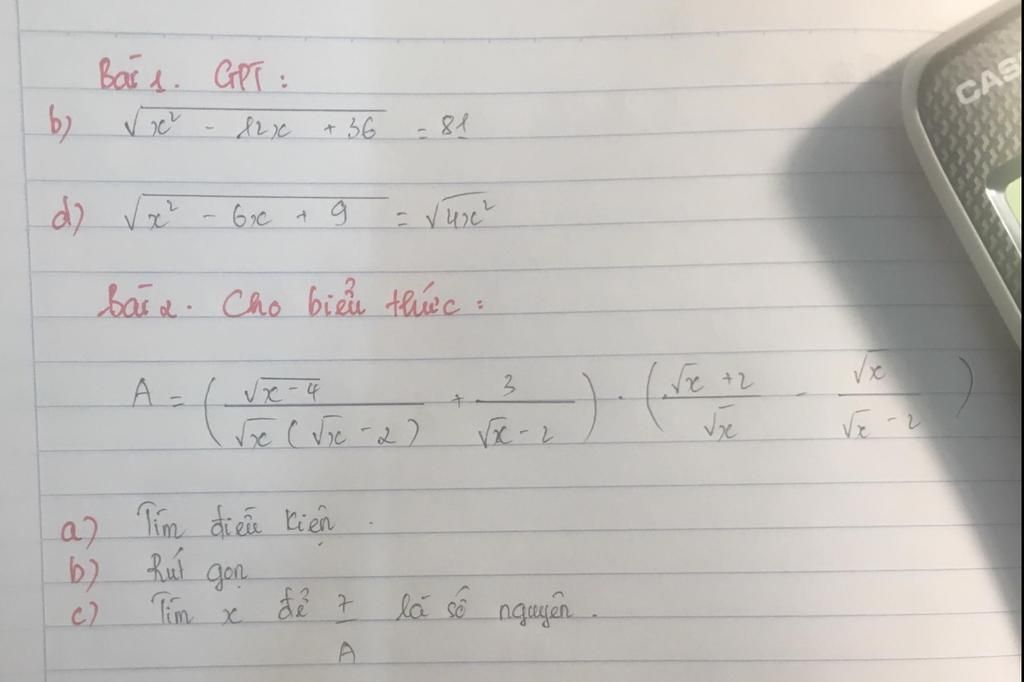 Bài 1. GPT:
b) √(x² - 12x + 36) = 81
d) √(x² - 6x + 9) = √(4x²)
Bài 2. Cho biểu thức:
A = (√(x-4)/(√x(√x-2)) + 3/(√x-2)) · ((√x+2)/√x - √x/(√x-2))
a) Tìm điều kiện.
b) Rút gọn
c) Tìm x để 7/A là số nguyên.